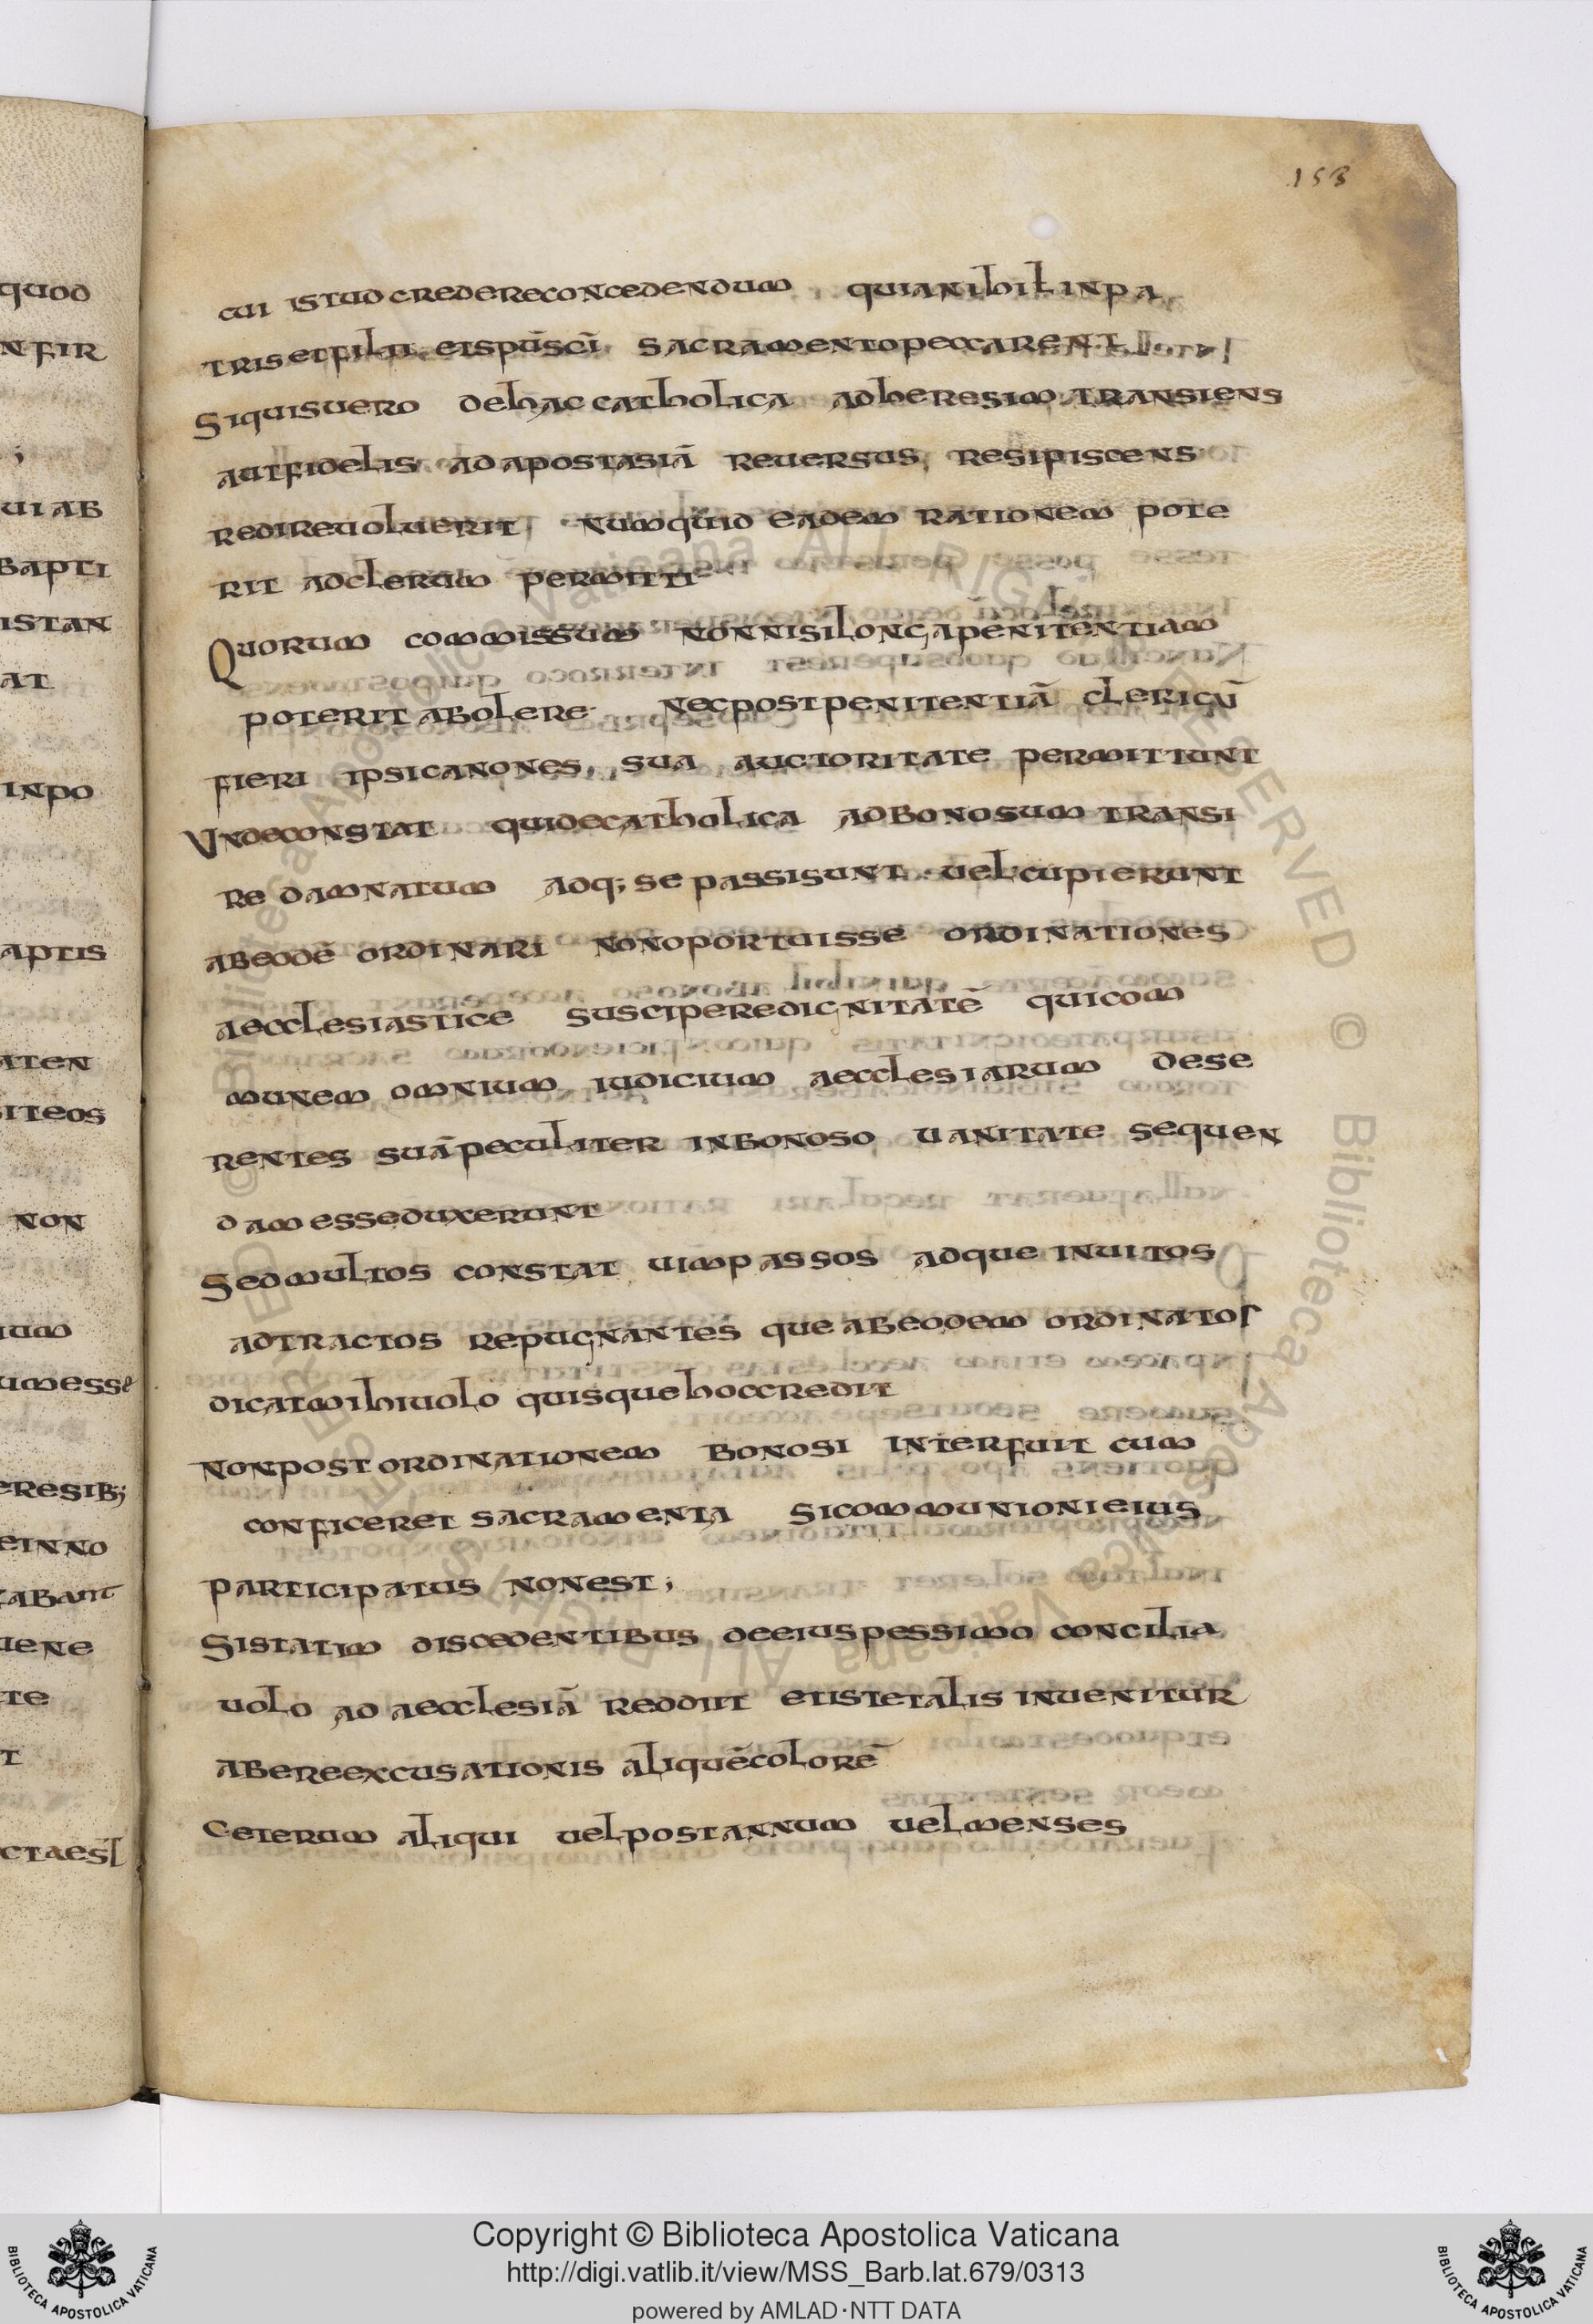 153
cui istud credere concedendum quia nihil in pa
tris et filii et sp̄us sc̄i sacramento peccarent
Siquis uero de hac catholica ad heresim transiens
aut fidelis ad apostasiā reuersus resipiscens
redire uoluerit numquid eadem rationem pote
rit ad clerum permitti
Quorum commissum non nisi longa penitentiam
poterit abolere nec post penitentiā clericū
fieri ipsi canones, sua auctoritate permittunt
Unde constat qui de catholica ad bonosum transi
re damnatum adq; se passi sunt uel cupierunt
ab eodē ordinari non oportuisse ordinationes
aecclesiastice suscipere dignitatē qui com
munem omnium iudicium aecclesiarum dese
rentes suā peculiter in bonoso uanitate sequen
dam esse duxerunt
Sed multos constat uim passos adque inuitos
adtractos repugnantes que ab eodem ordinatos
dicat mihi uolo quisque hoc credit
Non post ordinationem bonosi interfuit cum
conficeret sacramenta si communioni eius
participatus non est;
Si statim discedentibus de eius pessimo concilia
uolo ad aecclesiā reddiit et iste talis inuenitur
abere excusationis aliquē colorē
Ceterum aliqui uel post annum uel menses
quod
nfir
;
ui ab
bapti
istan
at
inpo
aptis
aten
siteos
non
ium
umesse
eresib;
einno
tabant
uene
te
t
Copyright © Biblioteca Apostolica Vaticana
http://digi.vatlib.it/view/MSS_Barb.lat.679/0313
powered by AMLAD·NTT DATA
BIBLIOTECA APOSTOLICA VATICANA
BIBLIOTECA APOSTOLICA VATICANA